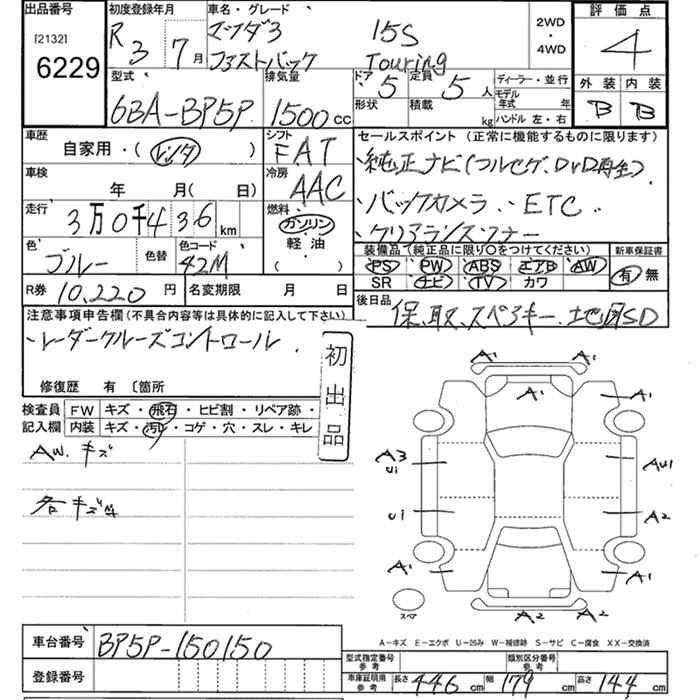 出品番号
[2132]
6229
初度登録年月
R 3 7月
車名・グレード
マツダ3 15S
ファストバック Touring
2WD
・
4WD
評価点
4
外装 内装
B B
型式
6BA-BP5P
排気量
1500 cc
ドア 5
形状
定員 5 人
積載 kg
ディーラー・並行
モデル年式 年
ハンドル 左・右
車歴
自家用・(レンタ)
シフト
FAT
冷房
AAC
燃料
ガソリン
・
軽油
( )
車検
年 月( 日)
走行
3万0千436 km
色
ブルー
色替
色コード
42M
R券 10,220 円
名変期限 月 日
セールスポイント(正常に機能するものに限ります)
・純正ナビ(フルセグ、DVD再生)
・バックカメラ ・ETC
・クリアランスソナー
装備品(純正品に限り○をつけてください)
PS PW ABS エアB AW
SR ナビ TV カワ
新車保証書
有 無
後日品
保、取、スペアキー、地図SD
注意事項申告欄(不具合内容等は具体的に記入して下さい)
・レーダークルーズコントロール
修復歴 有〔箇所
初出品
検査員 FW キズ・飛石・ヒビ割・リペア跡・
記入欄 内装 キズ・汚レ・コゲ・穴・スレ・キレ
AW、キズ
各キズ
A1 A1
A1 A1
A3
U1
AU1
U1 A2
A1 A1
スペア
A2 A2
A-キズ E-エクボ U-凹み W-補修跡 S-サビ C-腐食 XX-交換済
車台番号 BP5P-150150
登録番号
型式指定番号
参考
類別区分番号
参考
車庫証明用
参考
長さ 446 cm 幅 179 cm 高さ 144 cm